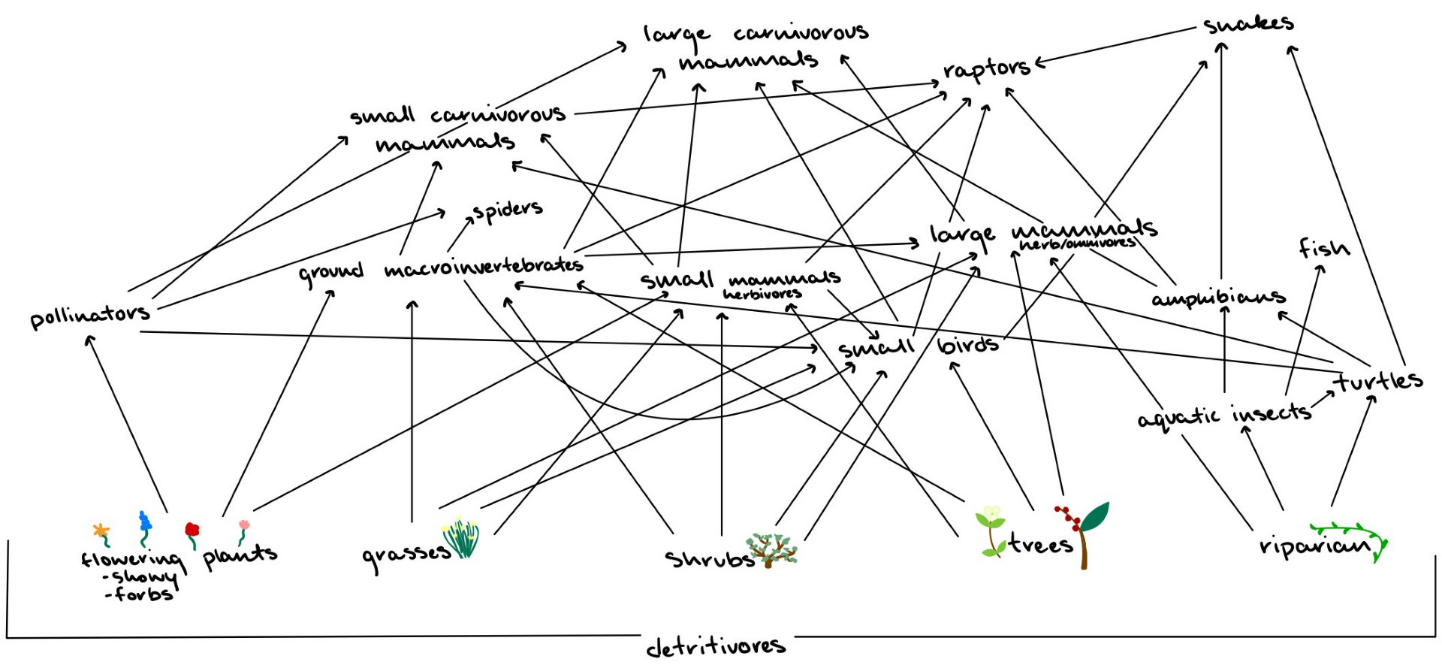 large carnivorous
mammals
snakes
raptors
small carnivorous
mammals
spiders
large mammals
herb/omnivores
fish
ground macroinvertebrates
small mammals
herbivores
amphibians
pollinators
small birds
turtles
aquatic insects
flowering plants
-showy
-forbs
grasses
shrubs
trees
riparian
detritivores